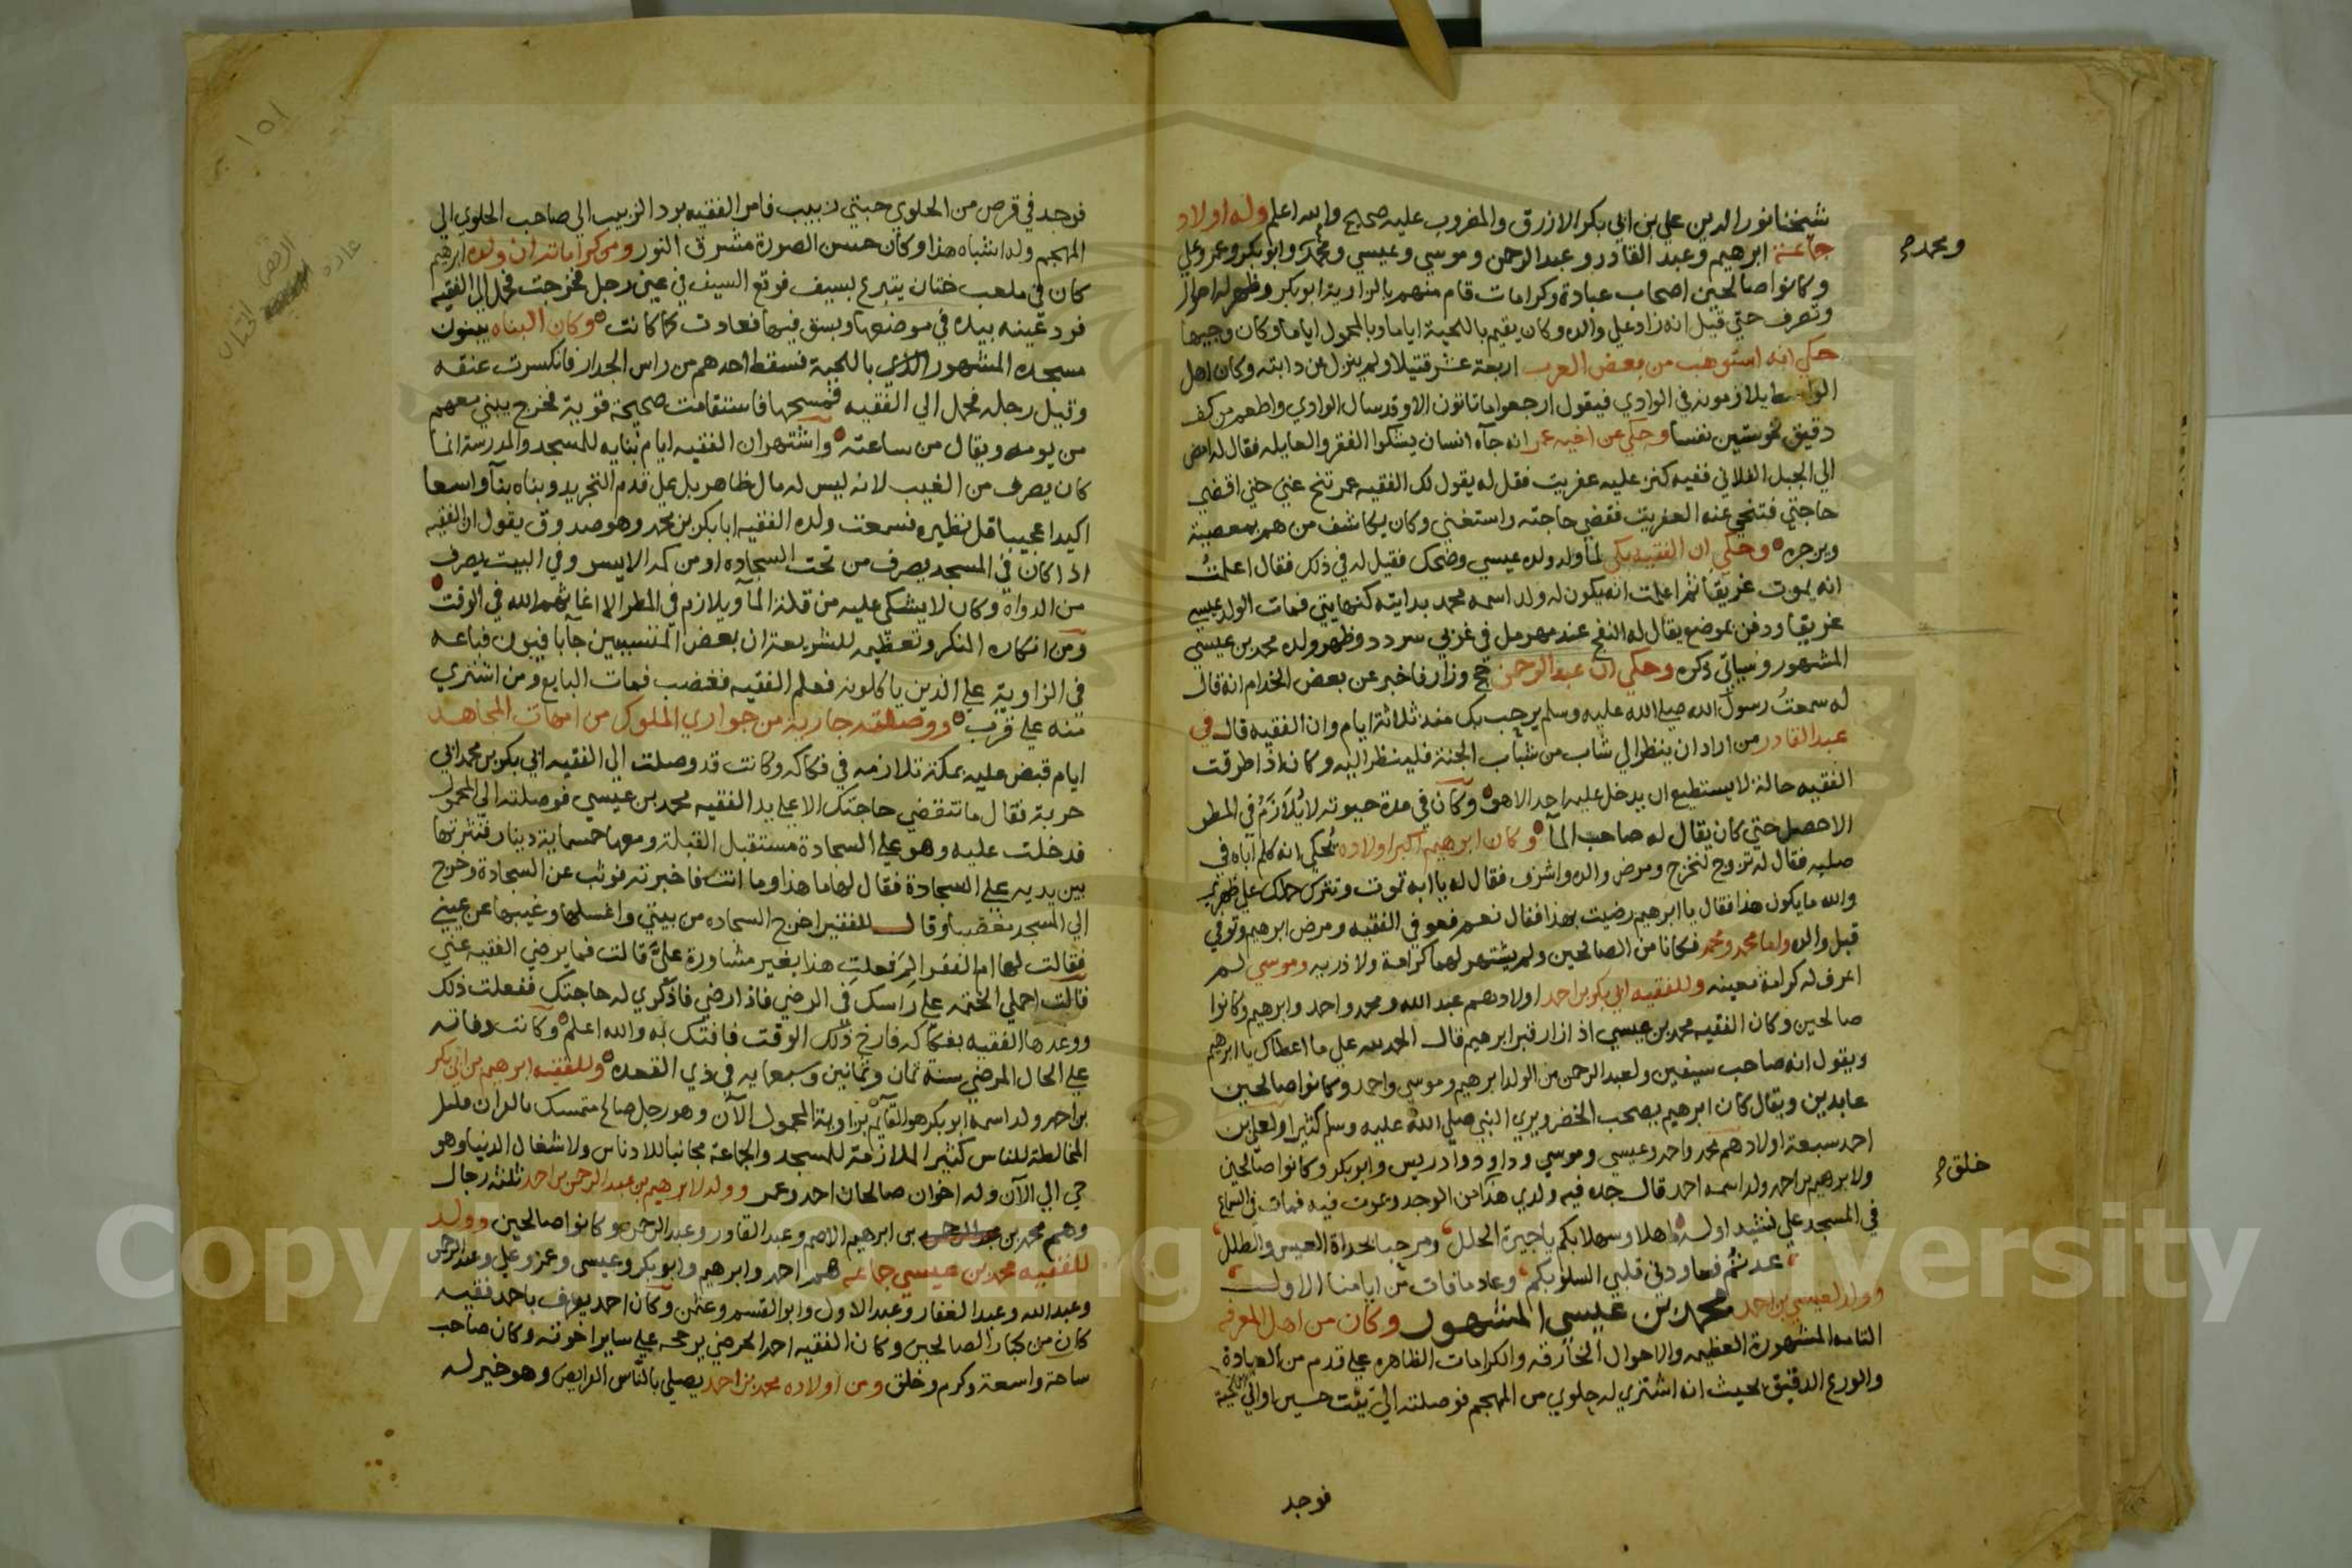 شيخنا نور الدين علي بن ابي بكر الازرق والمضروب عليه صحيح والله اعلم وله اولاد
جماعة ابرهيم وعبد القادر وعبد الرحمن وموسى وعيسى ومحمد وابو بكر وعمر وعلي
ومحمد صح
وكانوا صالحين اصحاب عبادة وكرامات قام منهم بالزاوية ابو بكر وظهر له احوال
وتصرف حتى قيل انه زاد على والده وكان يقيم باللحية اياما وبالمحمول اياما وكان وجيها
حكي انه استوهب من بعض العرب اربعة عشر قتيلا ولم ينزل عن دابته وكان اهل
يلازمونه في الوادي فيقول ارجعوا ما تاتون الا وقد سال الوادي واطعم من كف
دقيق نحو ستين نفسا وحكي عن اخيه عمر انه جآه انسان يشكوا الفقر والعايله فقال له امض
الي الجبل الفلاني ففيه كنز عليه عفريت فقل له يقول لك الفقيه عمر تنح عني حتى اقضي
حاجتي فتنحي عنه العفريت فقضى حاجته واستغنى وكان يكاشف من هم بمعصية
ويزجره وحكي ان الفقيه بكي لما ولد ولده عيسى وضحك فقيل له في ذلك فقال اعلمت
انه يموت غريقا ثم اعلمت انه يكون له ولد اسمه محمد بدايته كنهايتي فمات الولد عيسى
غريقا ودفن بموضع يقال له النفح عند مهرمل في غربي سردد وظهر ولده محمد بن عيسى
المشهور وسياتي ذكره وحكي ان عبد الرحمن حج وزار فاخبر عن بعض الخدام انه قال
له سمعت رسول الله صلى الله عليه وسلم يرحب بك منذ ثلاثة ايام وان الفقيه قال في
عبد القادر من اراد ان ينظر الي شاب من شباب الجنة فلينظر اليه وكان اذا طرقت
الفقيه حالة لا يستطيع ان يدخل عليه احد الا هو وكان في مدة حيوته لا يلازم في المطر
الا حصل حتى كان يقال له صاحب المآ وكان ابرهيم اكبر اولاده يحكي انه كلم اباه في
صلبه فقال له تزوج لنخرج ومرض والده واشرف فقال له يا ابه تموت وتترك حملك على ظهري
والله ما يكون هذا فقال يا ابرهيم رضيت بهذا فقال نعم فعوفي الفقيه ومرض ابرهيم وتوفي
قبل والده واما محمد ومحمد فكانا من الصالحين ولم يشتهر لهما كرامة ولا ذريه وموسى لم
اعرف له كرامة معينه وللفقيه ابي بكر بن احمد اولاد هم عبد الله ومحمد واحمد وابرهيم وكانوا
صالحين وكان الفقيه محمد بن عيسى اذا زار قبر ابرهيم قال الحمد لله على ما اعطاك يا ابرهيم
ويقول انه صاحب سيفين ولعبد الرحمن من الولد ابرهيم وموسى واحمد وكانوا صالحين
عابدين ويقال كان ابرهيم يصحب الخضر ويرى النبي صلى الله عليه وسلم كثيرا ولعلي بن
احمد سبعة اولاد هم محمد واحمد وعيسى وموسى وداوود وادريس وابو بكر وكانوا صالحين
خلق صح
ولابرهيم بن احمد ولد اسمه احمد قال جده فيه ولدي هذا من الوجد ويموت فيه فمات في السماع
في المسجد على نشيد اوله اهلا وسهلا بكم يا جيرة الحلل ومرحبا بحداة العيس والطلل
عدتم فعاودني قلبي السلو بكم وعاد ما فات من ايامنا الاول
وولد لعيسى بن احمد محمد بن عيسى المشهور وكان من اهل المعرفه
التامه المشهورة العظيمه والاحوال الخارقه والكرامات الظاهره على قدم من العبادة
والورع الدقيق بحيث انه اشترى له حلوى من المهجم فوصلته الي بيت حسين او الي اللحية
فوجد
١٥١
فوجد في قرص من الحلوى حبتي زبيب فامر الفقيه برد الزبيب الي صاحب الحلوى الي
المهجم وله اشباه هذا وكان حسن الصورة مشرق النور ومن كراماته ان ولده ابرهيم
كان في ملعب ختان يتبرع بسيف فوقع السيف في عين رجل فخرجت فحمل الي الفقيه
فرد عينه بيده في موضعها وبسق فيها فعادت كما كانت وكان البناه يبنون
مسجده المشهور الذي باللحية فسقط احدهم من راس الجدار فانكسرت عنقه
وقيل رجله فحمل الي الفقيه فمسحها فاستقامت صحيحة قوية فخرج يبني معهم
من يومه ويقال من ساعته واشتهر ان الفقيه ايام بنايه للمسجد والمدرسة انما
كان يصرف من الغيب لانه ليس له مال ظاهر بل على قدم التجريد وبناه بنآ واسعا
اكيدا عجيبا قل نظيره فسمعت ولده الفقيه ابا بكر بن محمد وهو صدوق يقول ان الفقيه
اذا كان في المسجد يصرف من تحت السجاده او من كمه الايسر وفي البيت يصرف
من الدواة وكان لا يشكى عليه من قلة المآ ويلازم في المطر الا اغاثهم الله في الوقت
ومن انكاره المنكر وتعظيمه للشريعة ان بعض المتسببين جآ بافيون فباعه
في الزاوية على الذين ياكلونه فعلم الفقيه فغضب فمات البايع ومن اشترى
منه على قرب ووصلته جارية من جواري الملوك من امهات المجاهد
ايام قبض عليه بمكة تلازمه في فكاكه وكانت قد وصلت الي الفقيه ابي بكر بن محمد ابي
حربة فقال ما تنقضي حاجتك الا على يد الفقيه محمد بن عيسى فوصلته الي المحمول
فدخلت عليه وهو على السجادة مستقبل القبلة ومعها خمسماية دينار فنثرتها
بين يديه على السجادة فقال لها ما هذا وما انت فاخبرته فوثب عن السجادة وخرج
الي المسجد مغضبا وقال للفقير اخرج السجاده من بيتي واغسلها وغيبها عن عيني
فقالت لها ام الفقرا لم فعلت هذا بغير مشاورة علي قالت فما يرضي الفقيه عني
قالت احملي الختمه على راسك في الرضي فاذا رضي فاذكري له حاجتك ففعلت ذلك
ووعدها الفقيه بفكاكه فارخ ذلك الوقت فافتك به والله اعلم وكانت وفاته
على الحال المرضي سنة ثمان وثمانين وسبعمايه في ذي القعده وللفقيه ابرهيم بن ابي بكر
بن احمد ولد اسمه ابو بكر هو القايم بزاوية المحمول الآن وهو رجل صالح متمسك بالقران قليل
المخالطة للناس كثير الملازمة للمسجد والجماعة مجانبا للادناس ولاشغال الدنيا وهو
حي الي الآن وله اخوان صالحان احمد وعمر وولد لابرهيم بن عبد الرحمن بن احمد ثلثة رجال
وهم محمد بن بن ابرهيم الاصم وعبد القادر وعبد الرحمن وكانوا صالحين وولد
للفقيه محمد بن عيسى جماعه هم احمد وابرهيم وابو بكر وعيسى وعمر وعلي وعبد الرحمن
وعبد الله وعبد الغفار وعبد الاول وابو القسم وعثمن وكان احمد يعرف باحمد فقيه
كان من كبار الصالحين وكان الفقيه احمد الحرضي يرجحه على ساير اخوته وكان صاحب
ساحة واسعة وكرم وخلق ومن اولاده محمد بن احمد يصلي بالناس الفرايض وهو خير له
Copyright © King Saud University